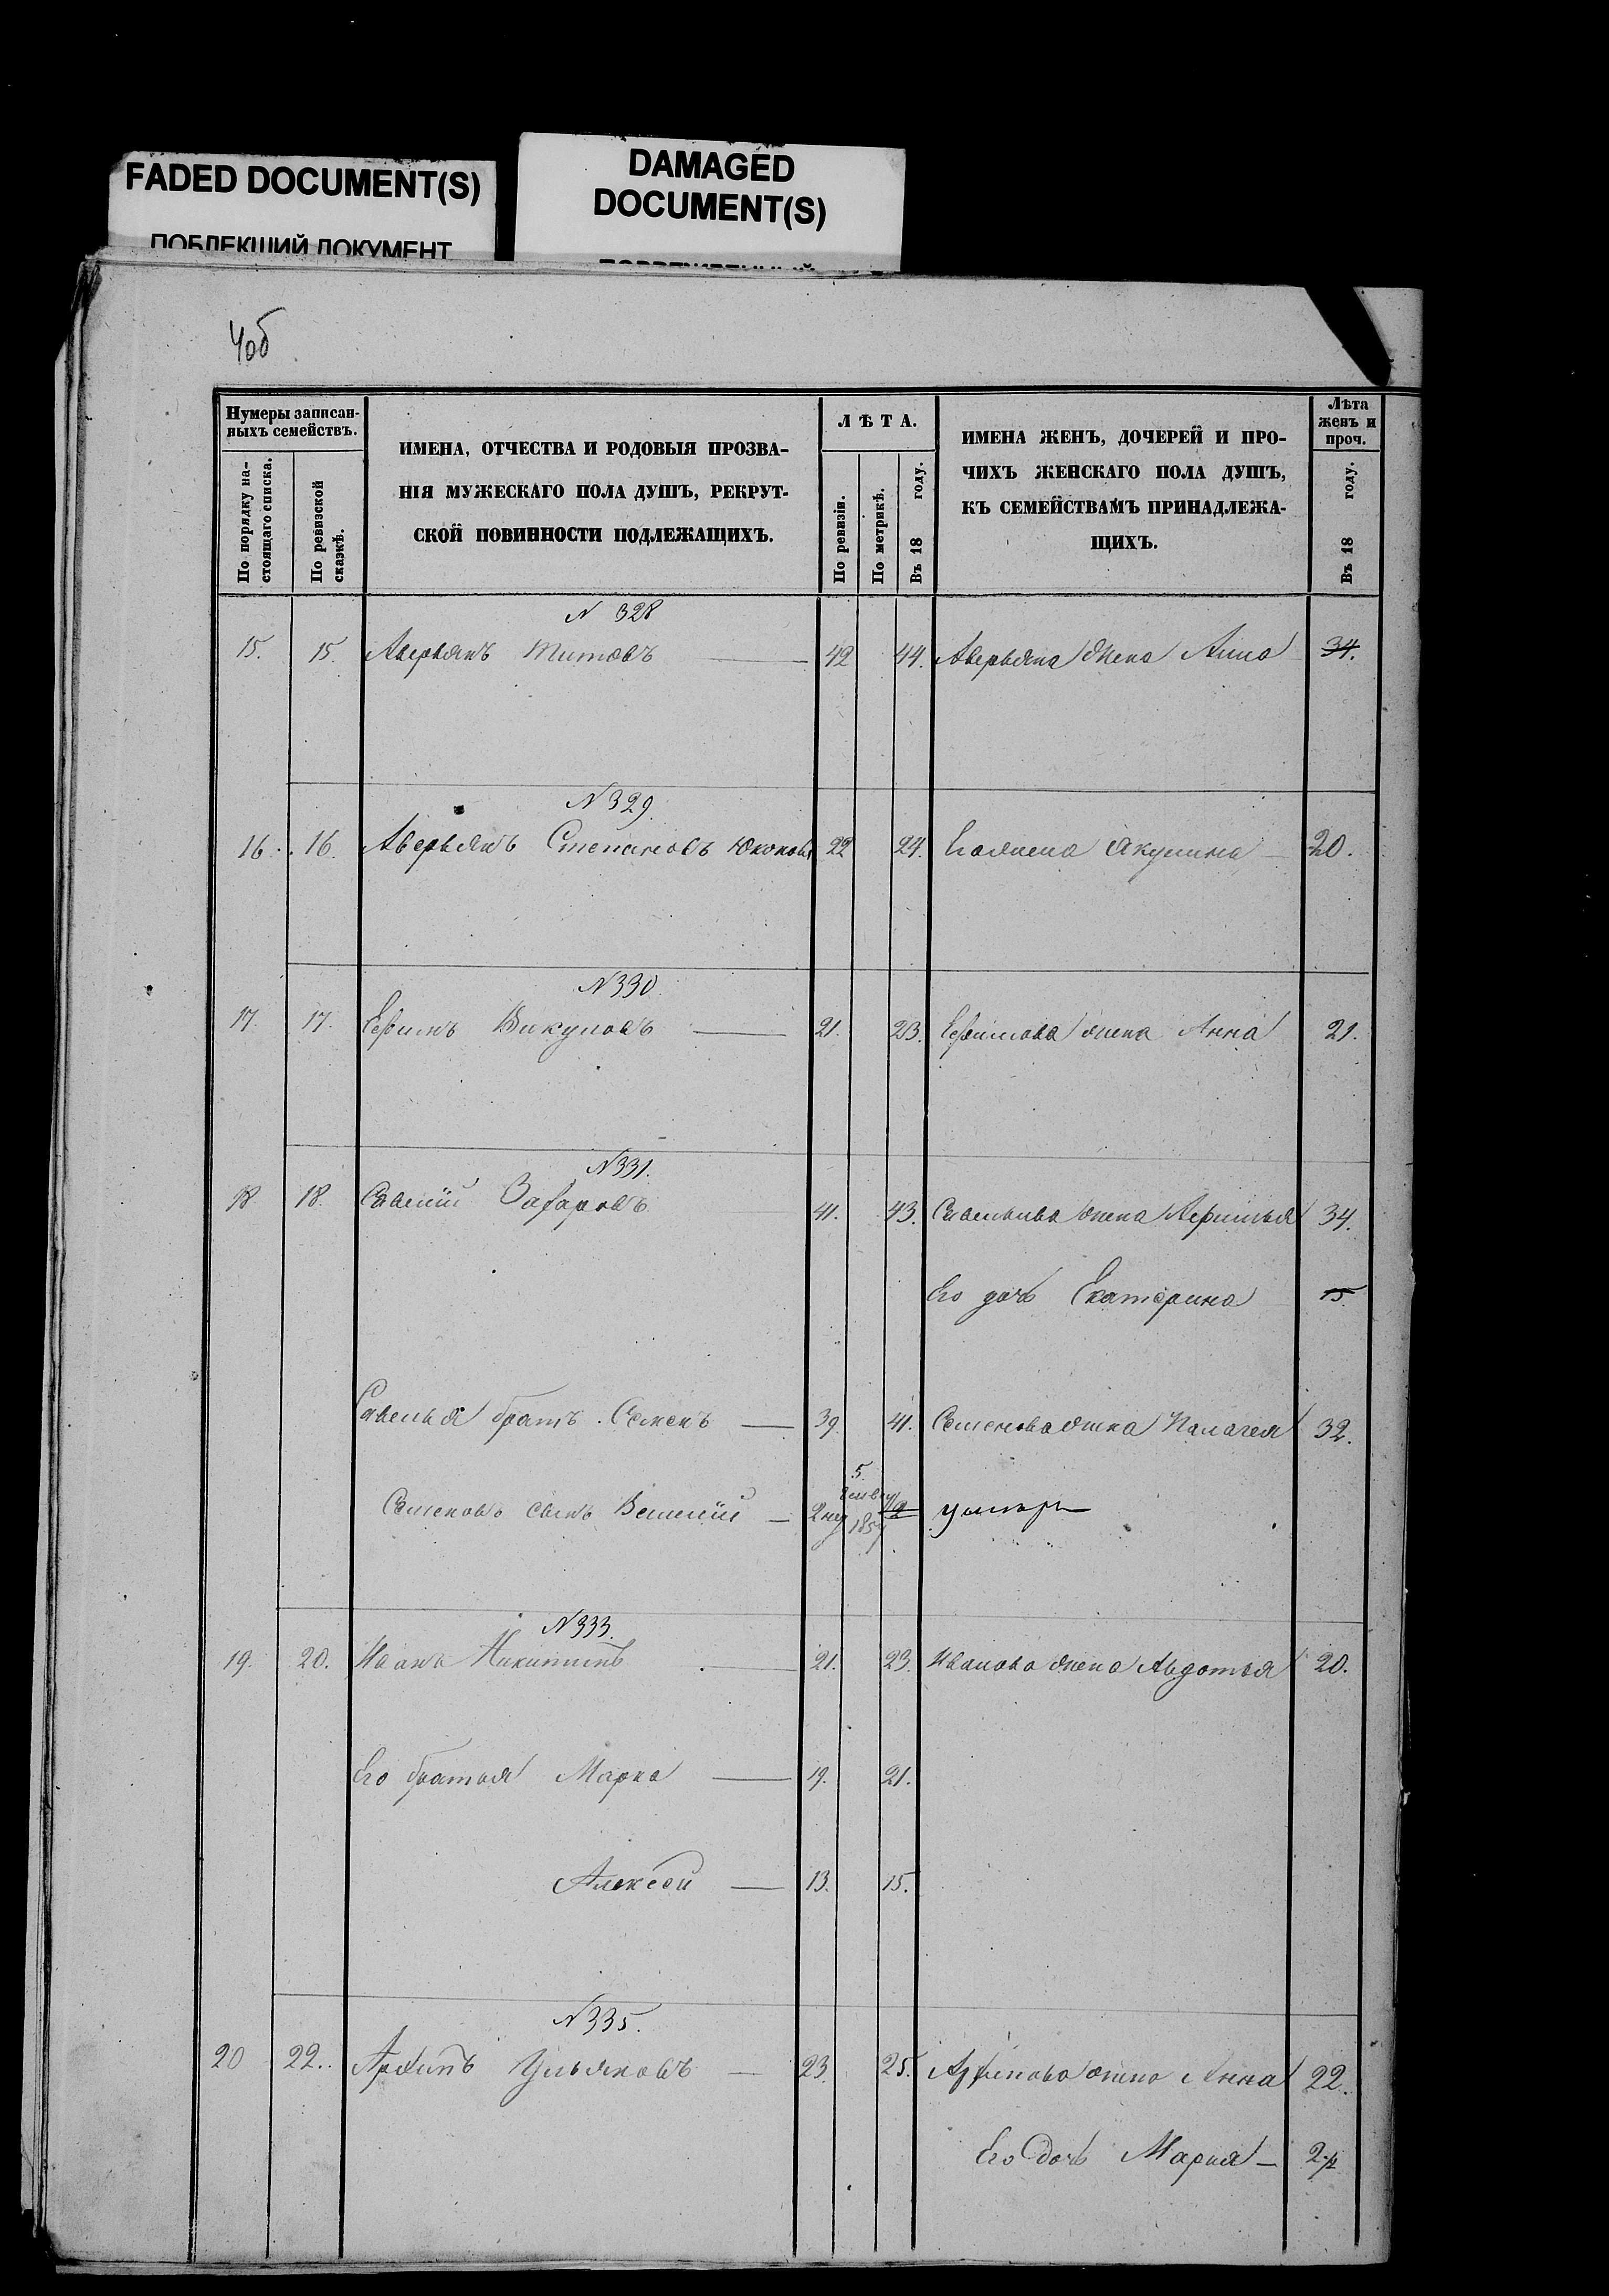 FADED DOCUMENT(S)
ПОБЛЕКШИЙ ДОКУМЕНТ
DAMAGED
DOCUMENT(S)
4об
Нумеры записан-
ныхъ семействъ.
По порядку на-
стоящаго списка.
По ревизской
сказкѣ.
ИМЕНА, ОТЧЕСТВА И РОДОВЫЯ ПРОЗВА-
НІЯ МУЖЕСКАГО ПОЛА ДУШЪ, РЕКРУТ-
СКОЙ ПОВИННОСТИ ПОДЛЕЖАЩИХЪ.
ЛѢТА.
По ревизіи.
По метрикѣ.
Въ 18 году.
ИМЕНА ЖЕНЪ, ДОЧЕРЕЙ И ПРО-
ЧИХЪ ЖЕНСКАГО ПОЛА ДУШЪ,
КЪ СЕМЕЙСТВАМЪ ПРИНАДЛЕЖА-
ЩИХЪ.
Лѣта
женъ и
проч.
Въ 18 году.
N 328
15. 15. Аверьянъ Титовъ 42 44. Аверьяна жена Анна 34.
N 329.
16. 16. Аверьянъ Степановъ 22 24. Его жена Акулина 20.
N 330
17. 17. Ефимъ Викуловъ 21. 23. Ефимова жена Анна 21.
N 331.
18 18. Савелій Захаровъ 41. 43. Савельева жена Афимья 34.
Его дочь Екатерина 15.
Савелья братъ Семенъ 39. 41. Семенова жена Палагея 32.
Семеновъ сынъ 2 нед 5 1857 умеръ
N 333.
19. 20. Иванъ Никитинъ 21. 23. Иванова жена Авдотья 20.
Его братья Марка 19. 21.
Алексей 13. 15.
N 335.
20 22. Архипъ Ульяновъ 23. 25. Архипова жена Анна 22.
Его дочь Мария 2